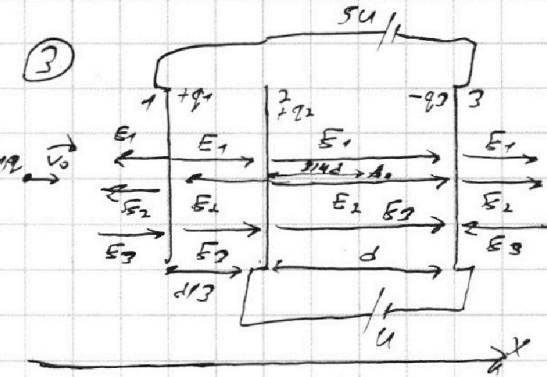 3
5U
1 +q1 2 +q2 -q3 3
E1 E1 E1 E1
V0
3/4d A0
E2 E2 E2 E2
E3 E3 E3 E3
d/3 d
U
X